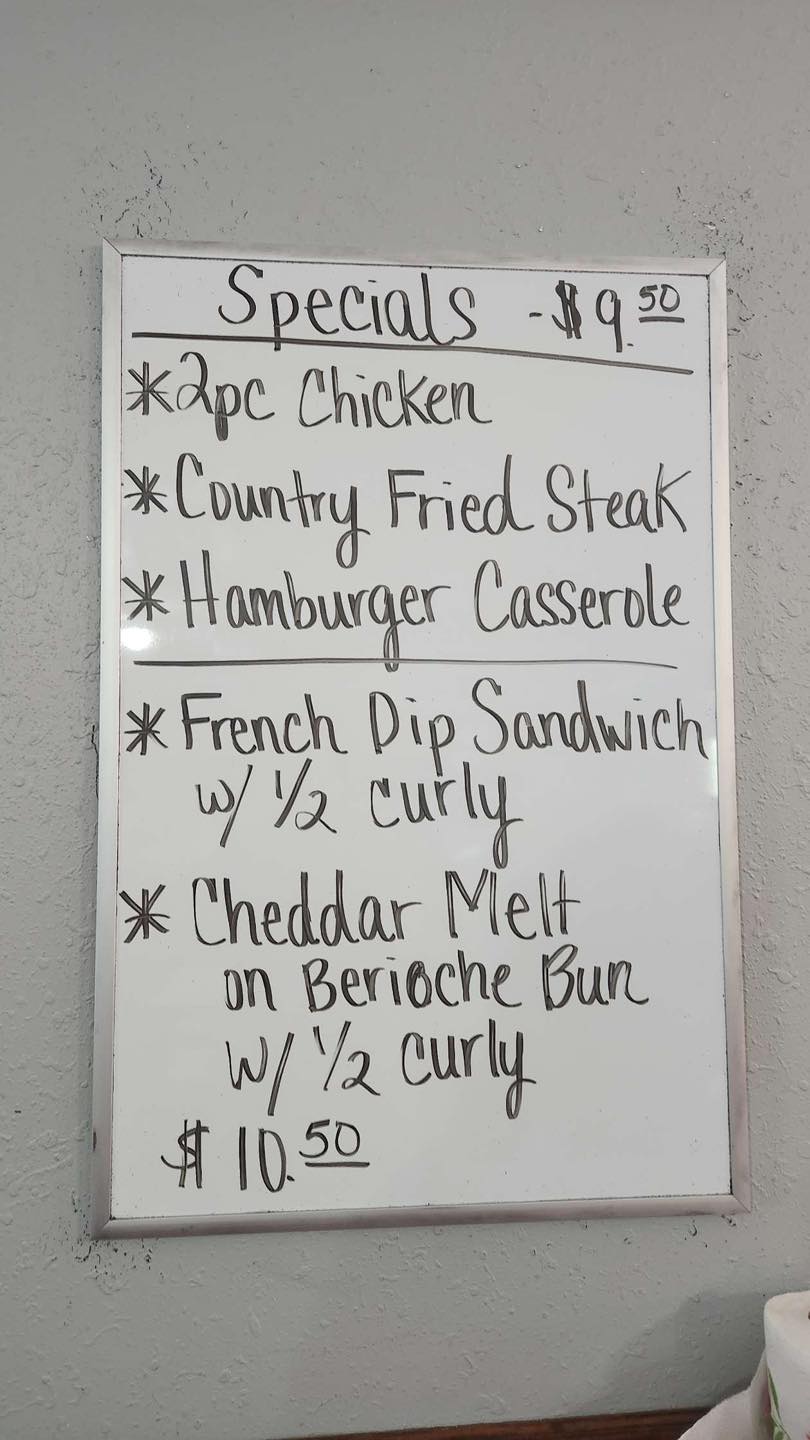 Specials - $9.50
*2pc Chicken
*Country Fried Steak
*Hamburger Casserole
* French Dip Sandwich
w/ 1/2 curly
* Cheddar Melt
on Berioche Bun
w/ 1/2 curly
$10.50